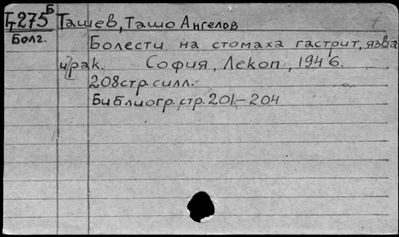 Г275 Б Ташев, Ташо Ангелов
Болг.
Болести на стомаха гастрит, язва
и рак. София, Лекоп, 1946.
208 стр. с илл.
Библиогр. стр. 201-204